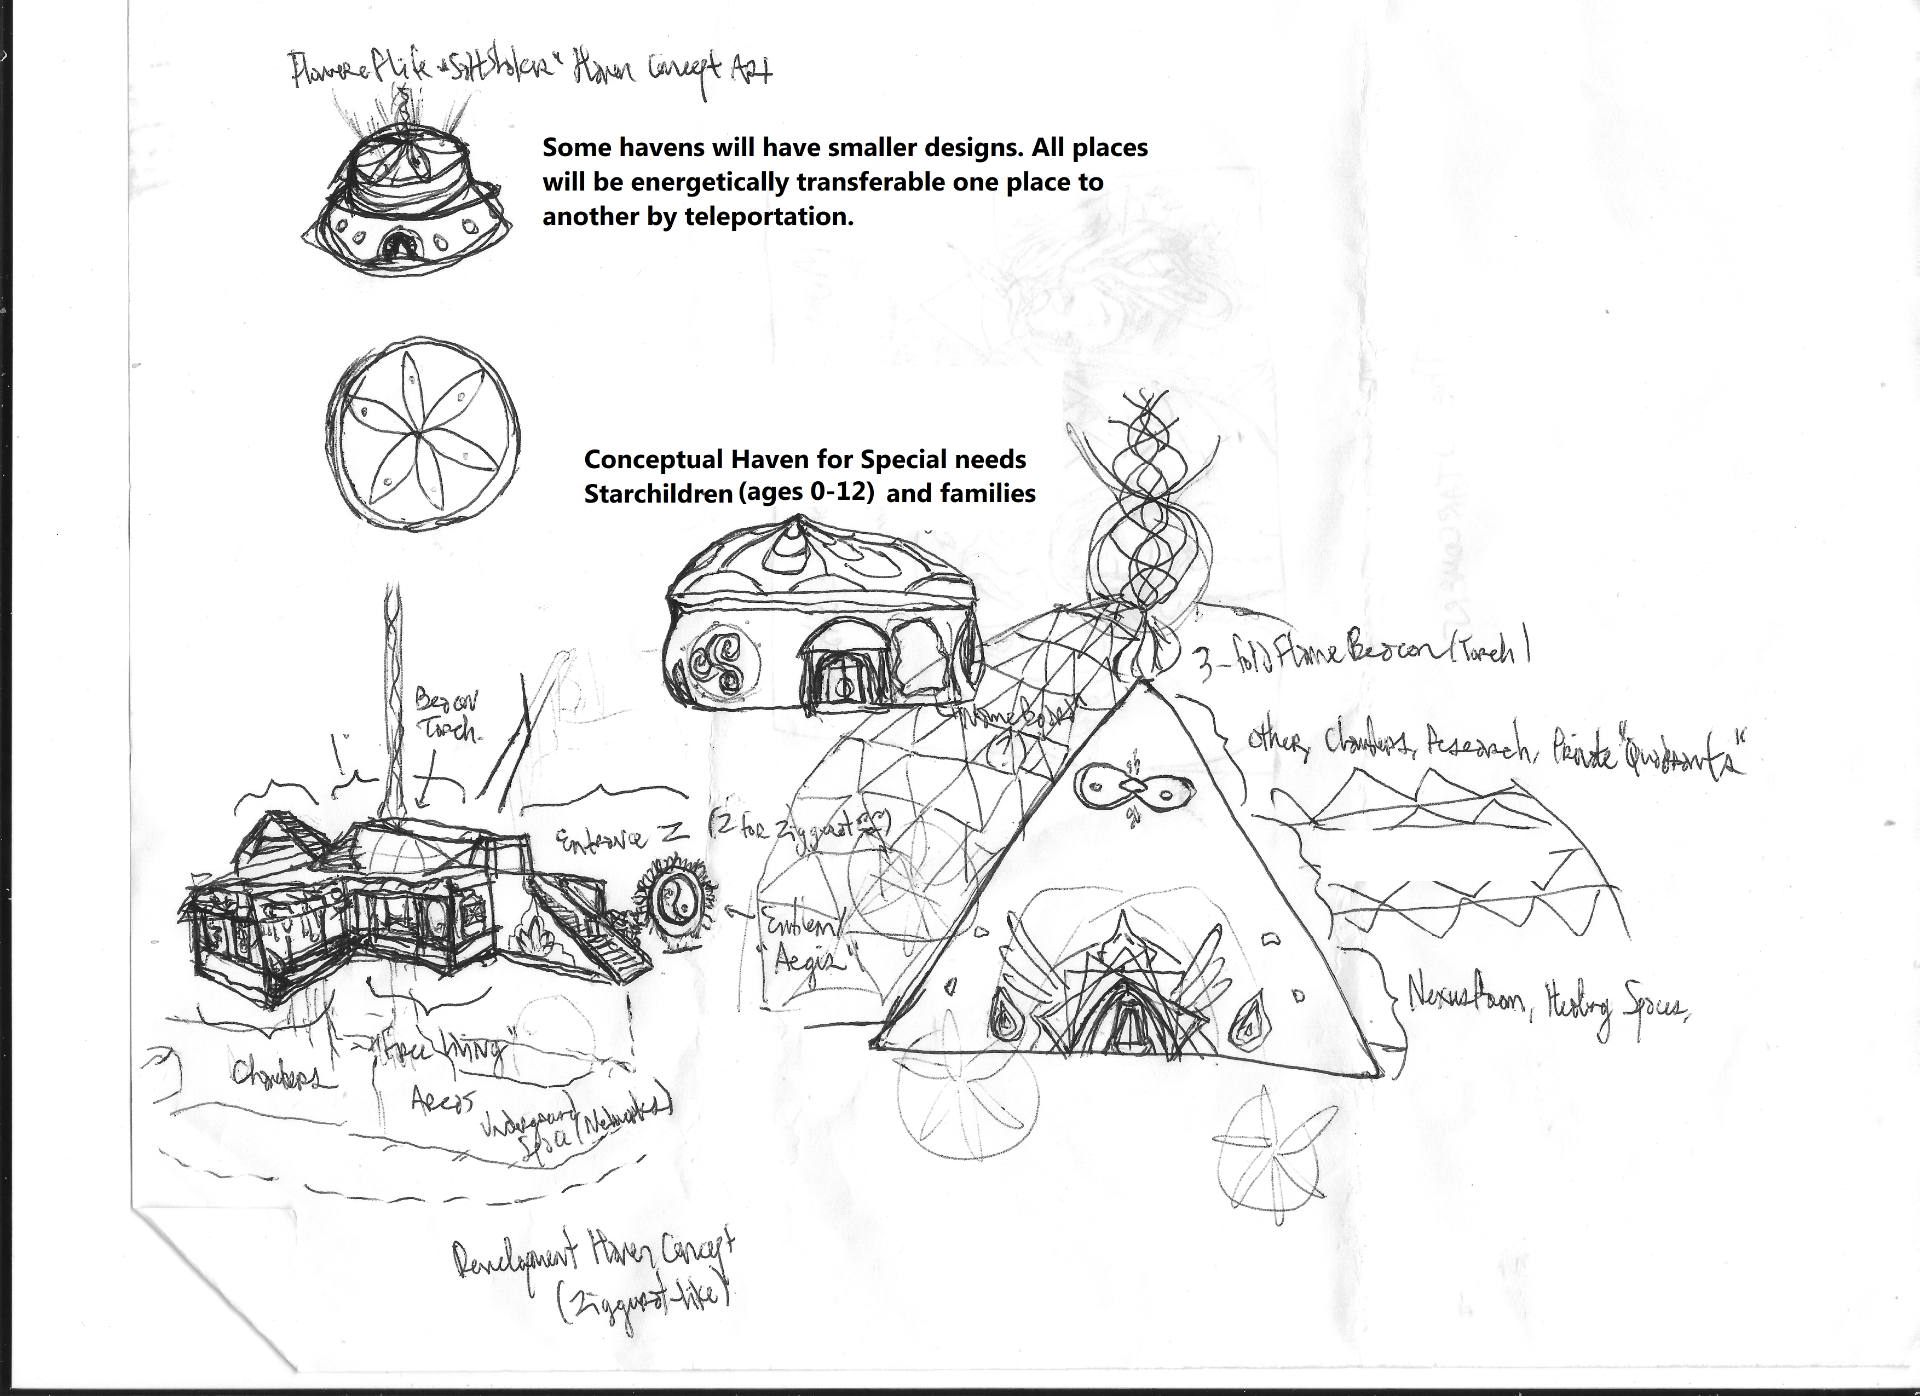 Flower of Life "Saltshaker" Haven Concept Art
Some havens will have smaller designs. All places
will be energetically transferable one place to
another by teleportation.
Conceptual Haven for Special needs
Starchildren (ages 0-12) and families
3-fold Flame Beacon (Torch)
Other, Chambers, Research, Private "Quadrants"
Beacon
Torch.
Entrance Z (Z for Ziggurat
Emblem/
"Aegis"
Healing Spaces,
Chambers
"Free Living"
Areas
Underground
Space (Networks)
Development Haven Concept
(Ziggurat-like)